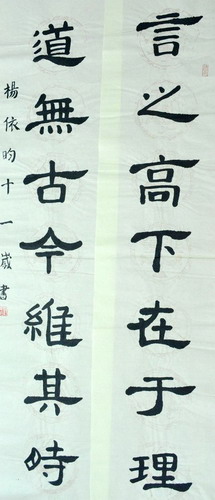 言之高下在于理
道無古今維其時
楊依昀十一歲書